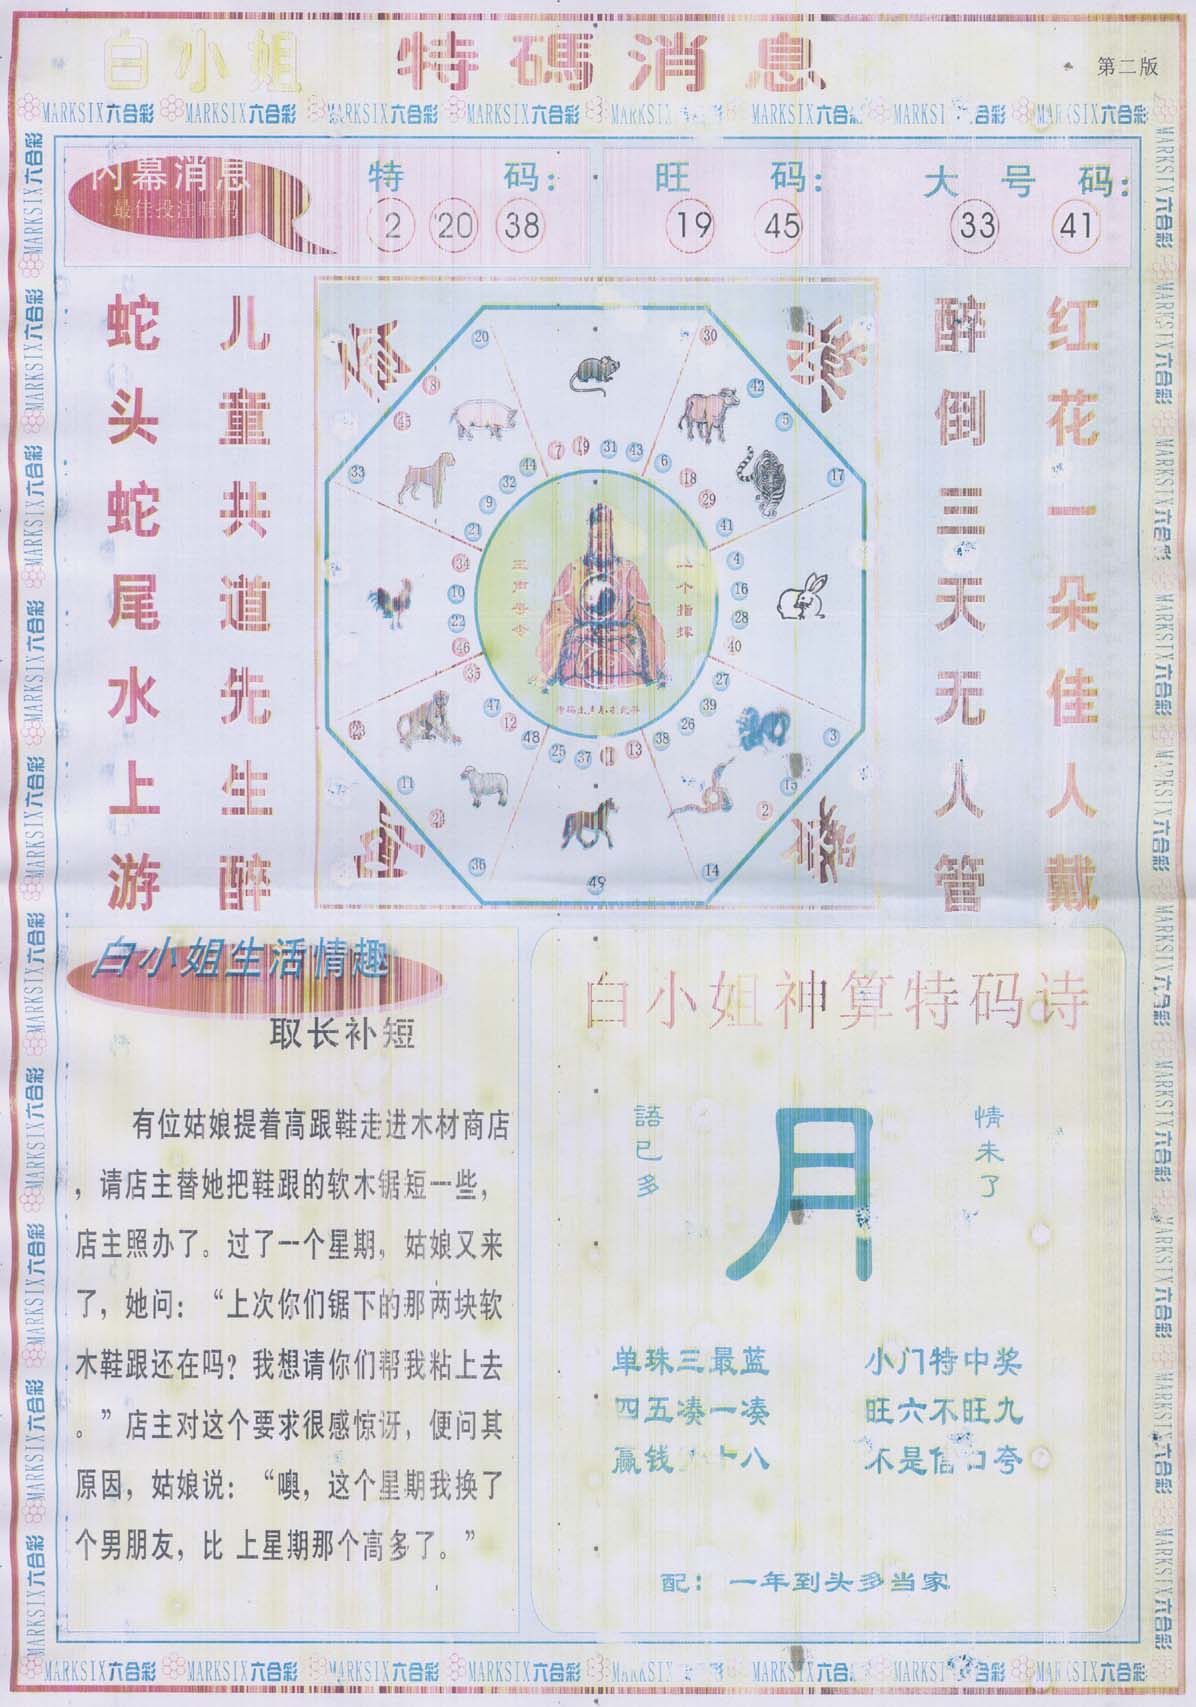 白小姐 特碼消息
第二版
MARKSIX六合彩 MARKSIX六合彩 MARKSIX六合彩 MARKSIX六合彩 MARKSIX六合彩 MARKSIX六合彩 MARKSIX六合彩 MARKSIX六合彩
内幕消息
最佳投注
特码：
2 20 38
旺码：
19 45
大号码：
33 41
蛇头蛇尾水上游
儿童共道先生醉
醉倒三天无人管
红花一朵佳人戴
20 8 45 33
30 42 5 17
7 19 31 43
6 18 29 41
4 16 28 40
27 39 3 15
26 38 2 14
13 1 37 25 49
48 12 24 36
47 35 23 11
46 22 10 34
21 9 32 44
白小姐生活情趣
取长补短
有位姑娘提着高跟鞋走进木材商店
，请店主替她把鞋跟的软木锯短一些，
店主照办了。过了一个星期，姑娘又来
了，她问：“上次你们锯下的那两块软
木鞋跟还在吗？我想请你们帮我粘上去
。”店主对这个要求很感惊讶，便问其
原因，姑娘说：“噢，这个星期我换了
个男朋友，比 上星期那个高多了。”
白小姐神算特码诗
語已多
月
情未了
单珠三最蓝 小门特中奖
四五凑一凑 旺六不旺九
赢钱 十八 不是信口夸
配： 一年到头多当家
MARKSIX六合彩 MARKSIX六合彩 MARKSIX六合彩 MARKSIX六合彩 MARKSIX六合彩 MARKSIX六合彩 MARKSIX六合彩 MARKSIX六合彩